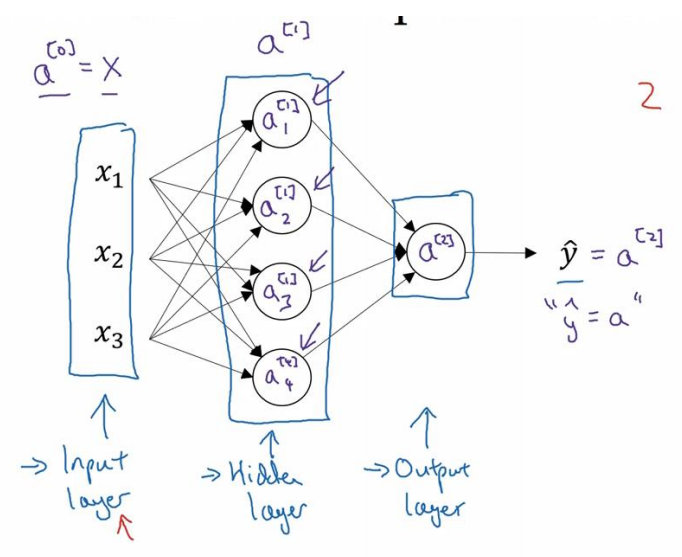 a^[0] = X
a^[1]
2
x₁
x₂
x₃
a₁^[1]
a₂^[1]
a₃^[1]
a₄^[4]
a^[2]
ŷ = a^[2]
"ŷ = a"
→ Input
layer
→ Hidden
layer
→ Output
layer